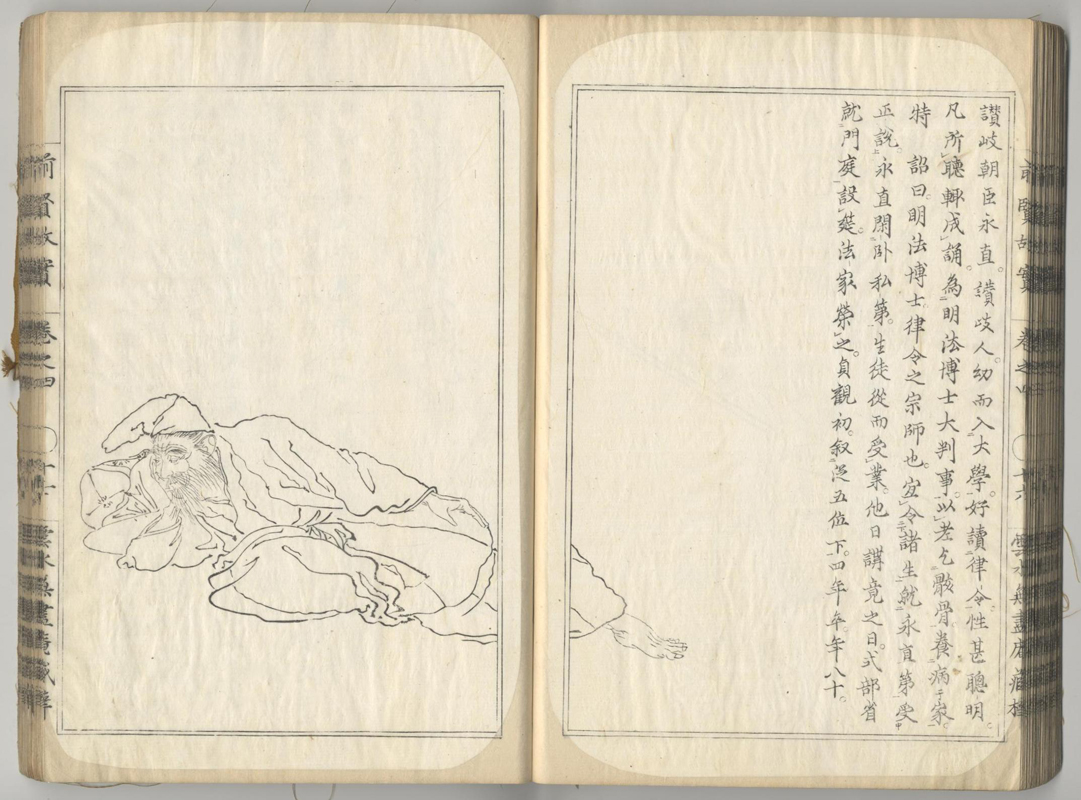 讃岐朝臣永直。讃岐人。幼而入大學。好讀律令。性甚聰明。
凡所聽輙成誦。為明法博士大判事。以老乞骸骨養病于家。
特 詔曰。明法博士律令之宗師也。宜令諸生就永直第受
正說。永直閑臥私第。生徒從而受業。他日講竟之日。式部省
就門庭設筵。法家榮之。貞觀初。叙從五位下。四年卒。年八十。
前賢故實 卷之四 十六
前賢故實 卷之四